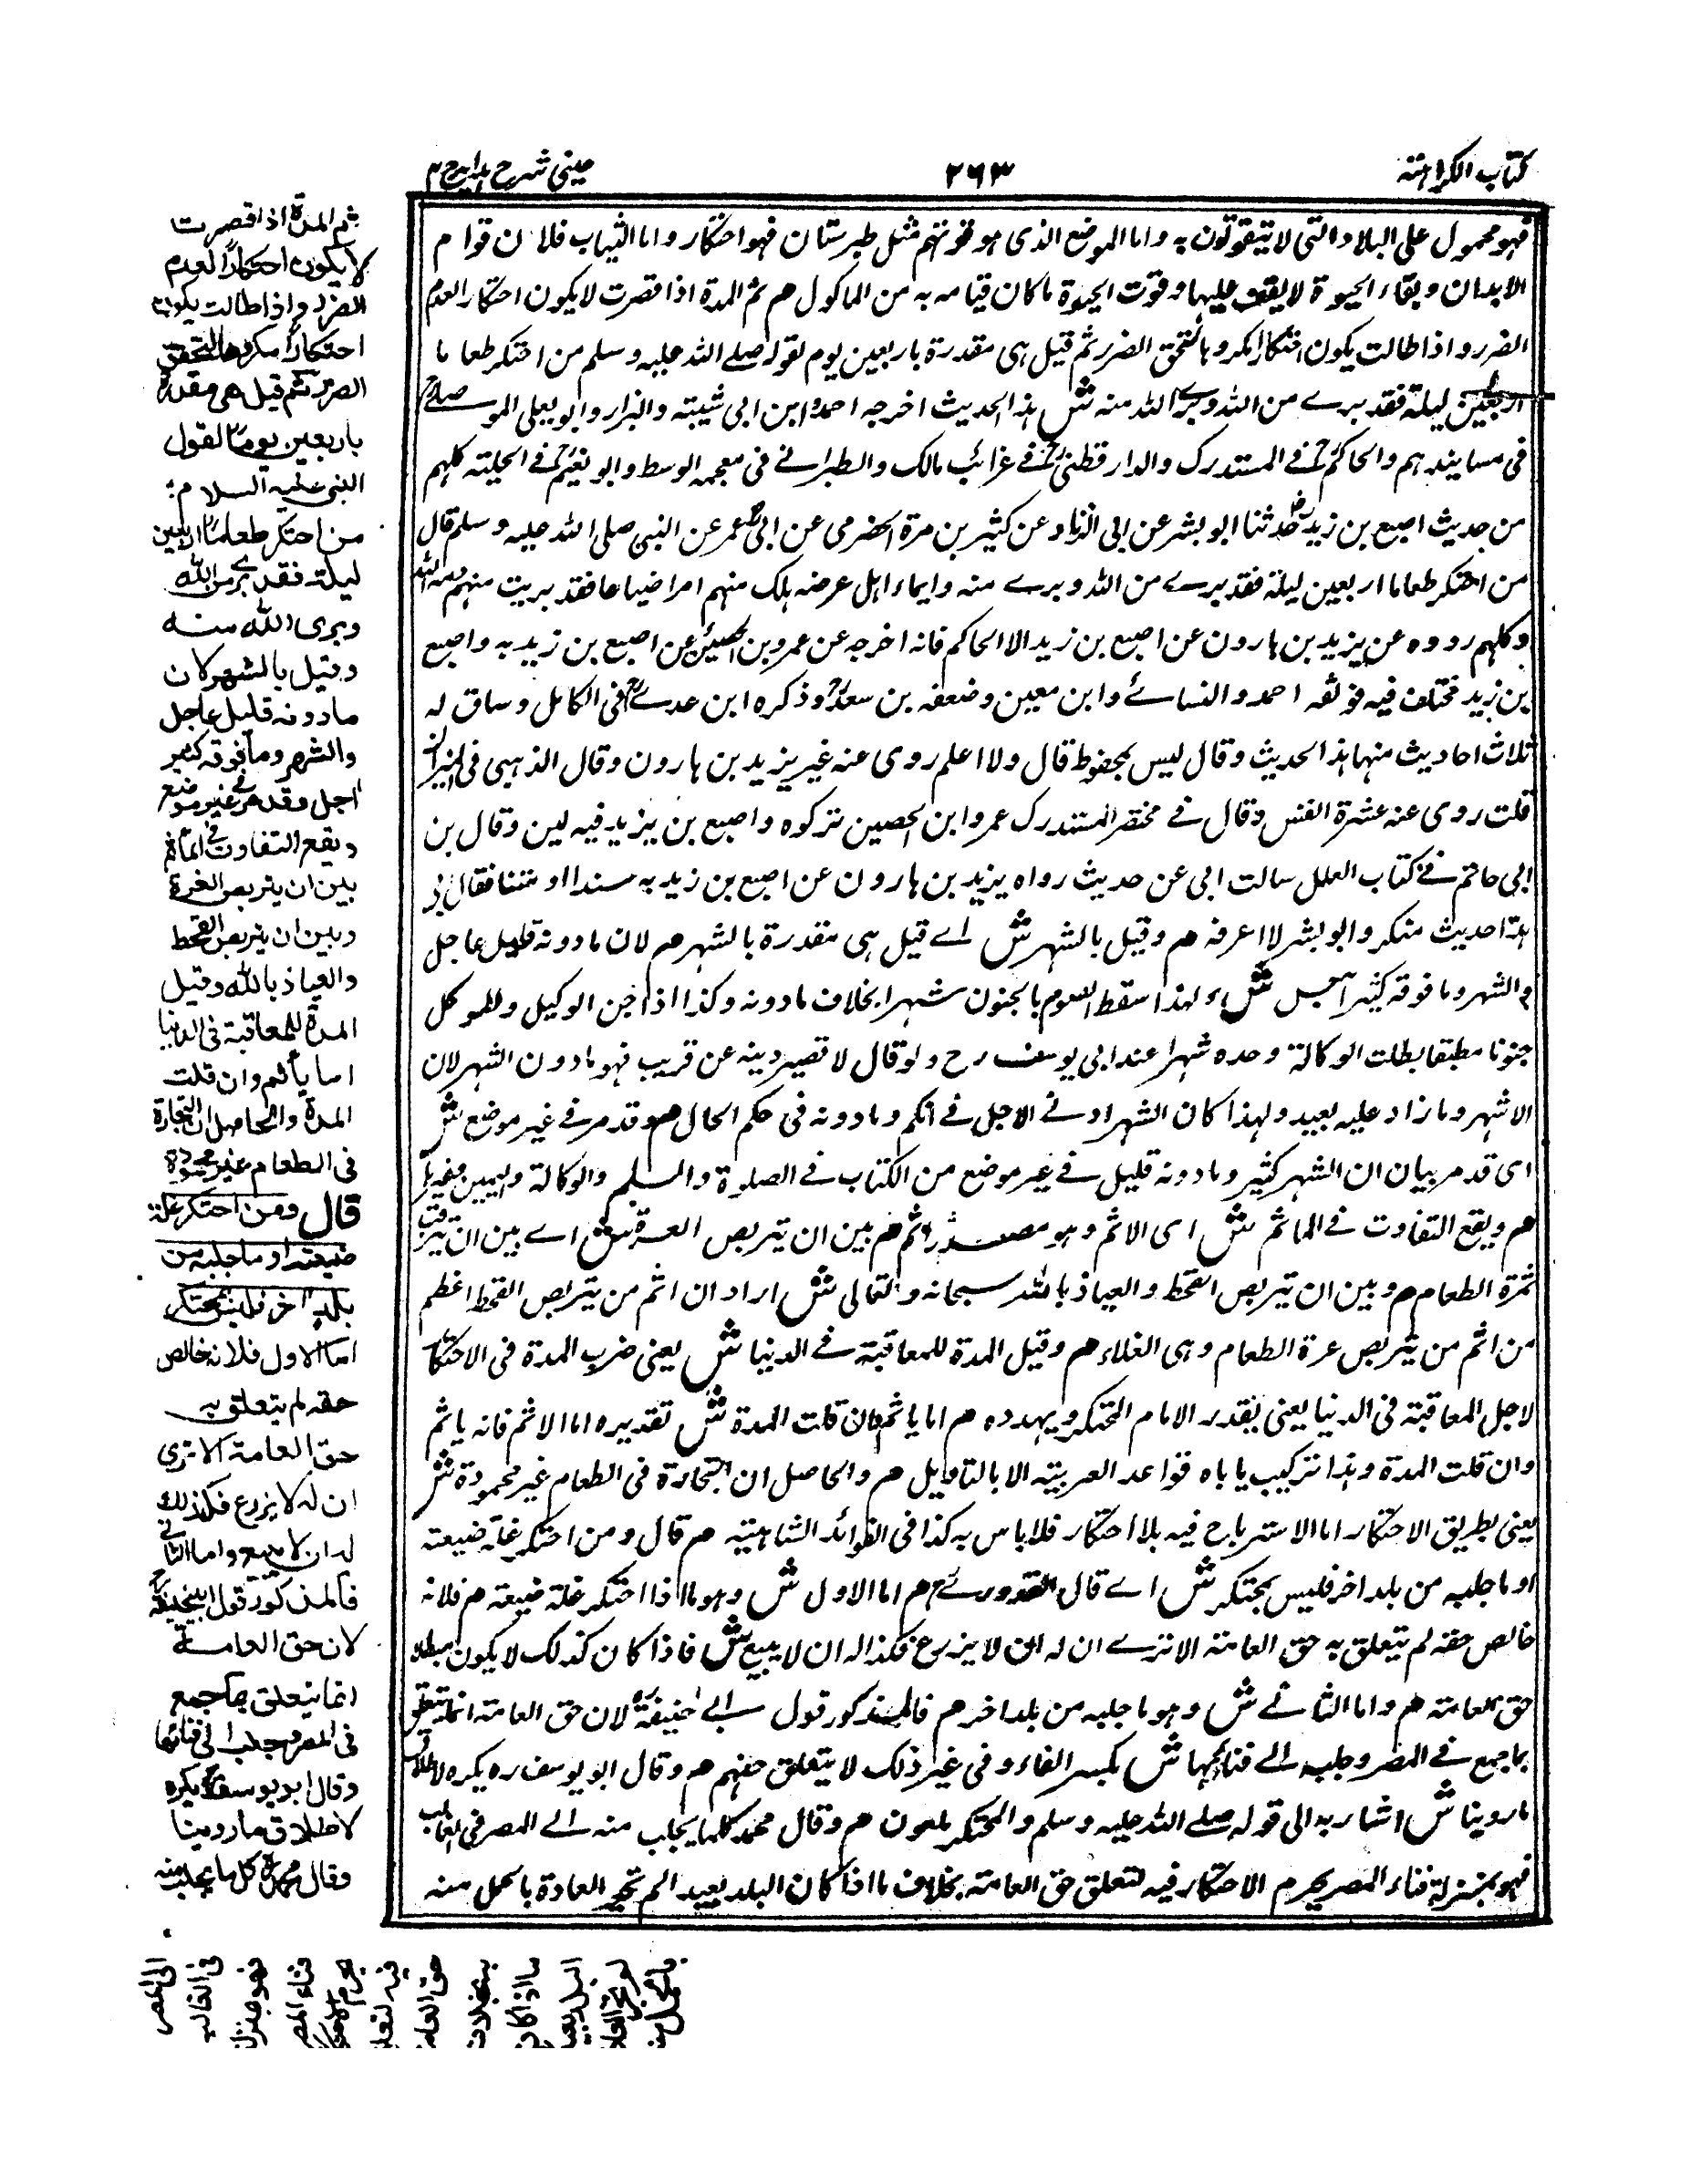 كتاب الكراهية
٢٦٣
عينى شرح هدايه ج ٤
فهو محمول على البلاد التى لا يتقوتون به واما الموضع الذى هو قوتهم مثل طبرستان فهو احتكار واما الثياب فلان قوام
الابدان وبقاء الحيوة لا يقف عليها وقوت الحيوة ما كان قيامه به من الماكول هم ثم المدة اذا قصرت لا يكون احتكارا لعدم
الضرر واذا طالت يكون احتكارا مكروها لتحقق الضرر ثم قيل هى مقدرة باربعين يوم لقوله صلے الله عليه وسلم من احتكر طعاما
اربعين ليلة فقد برے من الله وبرے الله منه ش هذا الحديث اخرجه احمد وابن ابى شيبة والبزار وابو يعلى الموصلے
فى مسانيدهم والحاكم فے المستدرك والدار قطنى فے غرائب مالك والطبرانے فى معجمه الوسط وابو نعيم فے الحلية كلهم
من حديث اصبع بن زيد حدثنا ابو بشر عن ابى الزناد عن كثير بن مرة الحضرمى عن ابن عمر عن النبى صلى الله عليه وسلم قال
من احتكر طعاما اربعين ليلة فقد برے من الله وبرے منه وايما اهل عرصة هلك منهم امرا ضياعا فقد بريت منهم ذمة الله
وكلهم رووه عن يزيد بن هارون عن اصبع بن زيد الا الحاكم فانه اخرجه عن عمرو بن الحصين عن اصبع بن زيد به واصبع
بن زيد مختلف فيه فوثقه احمد والنسائے وابن معين وضعفه بن سعد وذكره ابن عدے فى الكامل وساق له
ثلاث احاديث منها هذا الحديث وقال ليس بمحفوظ قال ولا اعلم روى عنه غير يزيد بن هارون وقال الذهبى فى الميزان
قلت روى عنه عشرة انفس وقال فے مختصر المستدرك عمرو ابن الحصين تركوه واصبع بن يزيد فيه لين وقال بن
ابى حاتم فے كتاب العلل سالت ابى عن حديث رواه يزيد بن هارون عن اصبع بن زيد به سندا او متنا فقال ابى
هذا حديث منكر وابو بشر لا اعرفه هم وقيل بالشهر ش اے قيل هى مقدرة بالشهر هم لان ما دونه قليل عاجل
م الشهر وما فوقه كثير اجل ش ولهذا سقط الصوم بالجنون شهرا بخلاف ما دونه وكذا اذا جن الوكيل وللموكل
جنونا مطبقا بطلت الوكالة وحده شهرا عند ابى يوسف رح ولو قال لا قصير دينه عن قريب فهو ما دون الشهر لان
الاشهر وما زاد عليه بعيد ولهذا كان الشهر ادنے الاجل فے الحكم وما دونه فى حكم الحال هم وقد مر فے غير موضع ش
اى قد مر بيان ان الشهر كثير وما دونه قليل فے غير موضع من الكتاب فے الصلوة والسلم والوكالة واليمين
هم ويقع التفاوت فے الماثم ش اى الاثم وهو مصدر اثم هم بين ان يتربص العزة ش اے بين ان يترقب
ثمرة الطعام هم وبين ان يتربص القحط والعياذ بالله سبحانه وتعالى ش اراد ان اثم من يتربص القحط اعظم
من اثم من يتربص عزة الطعام وهى الغلاء هم وقيل المدة للمعاقبة فے الدنيا ش يعنى ضرب المدة فى الاحتكار
لاجل المعاقبة فى الدنيا يعنى يقدر الامام المحتكر ويهدده هم اما ياثم وان قلت المدة ش تقديره اما الاثم فانه ياثم
وان قلت المدة وهذا تركيب ياباه قواعد العربية الا بالتاويل هم والحاصل ان التجارة فى الطعام غير محمودة ش
يعنى بطريق الاحتكار اما الاسترباح فيه بلا احتكار فلا باس به كذا فى الفوائد الشاهية هم قال ومن احتكر غلة ضيعته
او ما جلبه من بلد اخر فليس بمحتكر ش اے قال القدورے هم اما الاول ش وهو ما اذا احتكر غلة ضيعته هم فلانه
خالص حقه لم يتعلق به حق العامة الا ترے ان له ان لا يزرع فكذا له ان لا يبيع ش فاذا كان كذلك لا يكون مبطلا
حق العامة هم واما الثانے ش وهو ما جلبه من بلد اخر هم فالمذكور قول ابے حنيفة لان حق العامة انما يتعلق
بما جمع فے المصر وجلب الے فنائها ش بكسر الفاء وفى غير ذلك لا يتعلق حقهم هم وقال ابو يوسف ره يكره لاطلاق
ما روينا ش اشار به الى قوله صلے الله عليه وسلم والمحتكر ملعون هم وقال محمد كلما يجلب منه الے المصر فى الغالب
فهو بمنزلة فناء المصر يحرم الاحتكار فيه لتعلق حق العامة بخلاف ما اذا كان البلد بعيدا لم تجر العادة بالحمل منه
ثم المدة اذا قصرت
لا يكون احتكارًا لعدم
الضرر واذا طالت يكون
احتكارًا مكروهًا لتحقق
الضرر ثم قيل هى مقدرة
باربعين يومًا لقول
النبى عليه السلام:
من احتكر طعامًا اربعين
ليلة فقد برى من الله
وبرى الله منه
وقيل بالشهر لان
ما دونه قليل عاجل
والشهر وما فوقه كثير
اجل وقد مر فى غير موضع
ويقع التفاوت فى الماثم
بين ان يتربص العزة
وبين ان يتربص القحط
والعياذ بالله وقيل
المدة للمعاقبة فى الدنيا
اما يأثم وان قلت
المدة والحاصل ان التجارة
فى الطعام غير محمودة
قال ومن احتكر غلة
ضيعته او ما جلبه من
بلدٍ اخر فليس بمحتكر
اما الاول فلانه خالص
حقه لم يتعلق به
حق العامة الا ترى
ان له لا يزرع فكذلك
له ان لا يبيع واما الثانى
فالمذكور قول ابيحنيفة
لان حق العامة
انما يتعلق بما جمع
فى المصر وجلب الى فنائها
وقال ابو يوسف يكره
لاطلاق ما روينا
وقال محمد كل ما يجلب منه
الى المصر
فى الغالب
فهو بمنزلة
فناء المصر
يحرم الاحتكار
فيه لتعلق
حق العامة
بخلاف
ما اذا كان
البلد بعيدا
لم تجر العادة
بالحمل منه